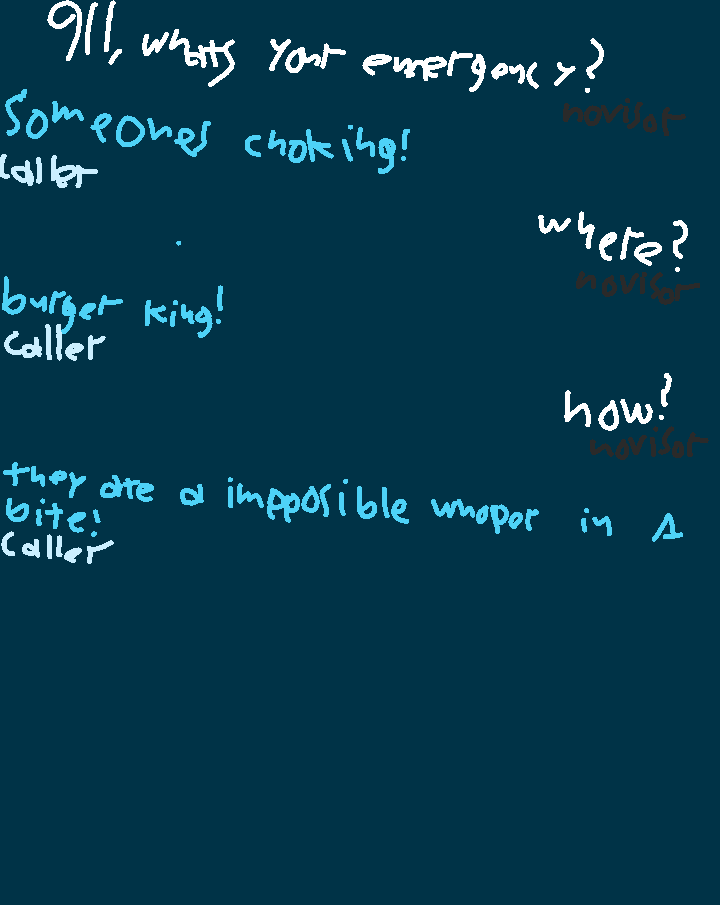 911, whats your emergency?
novisor
Someones choking!
Caller
where?
novisor
burger king!
Caller
how?
novisor
they are a impposible whopor in 1
bite!
Caller